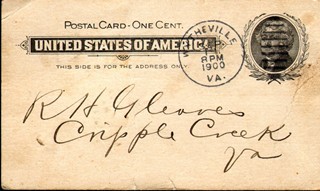 POSTAL CARD - ONE CENT.
UNITED STATES OF AMERICA.
THIS SIDE IS FOR THE ADDRESS ONLY.
WYTHEVILLE
8 PM
1900
VA.
R H Gleaves
Cripple Creek
Va